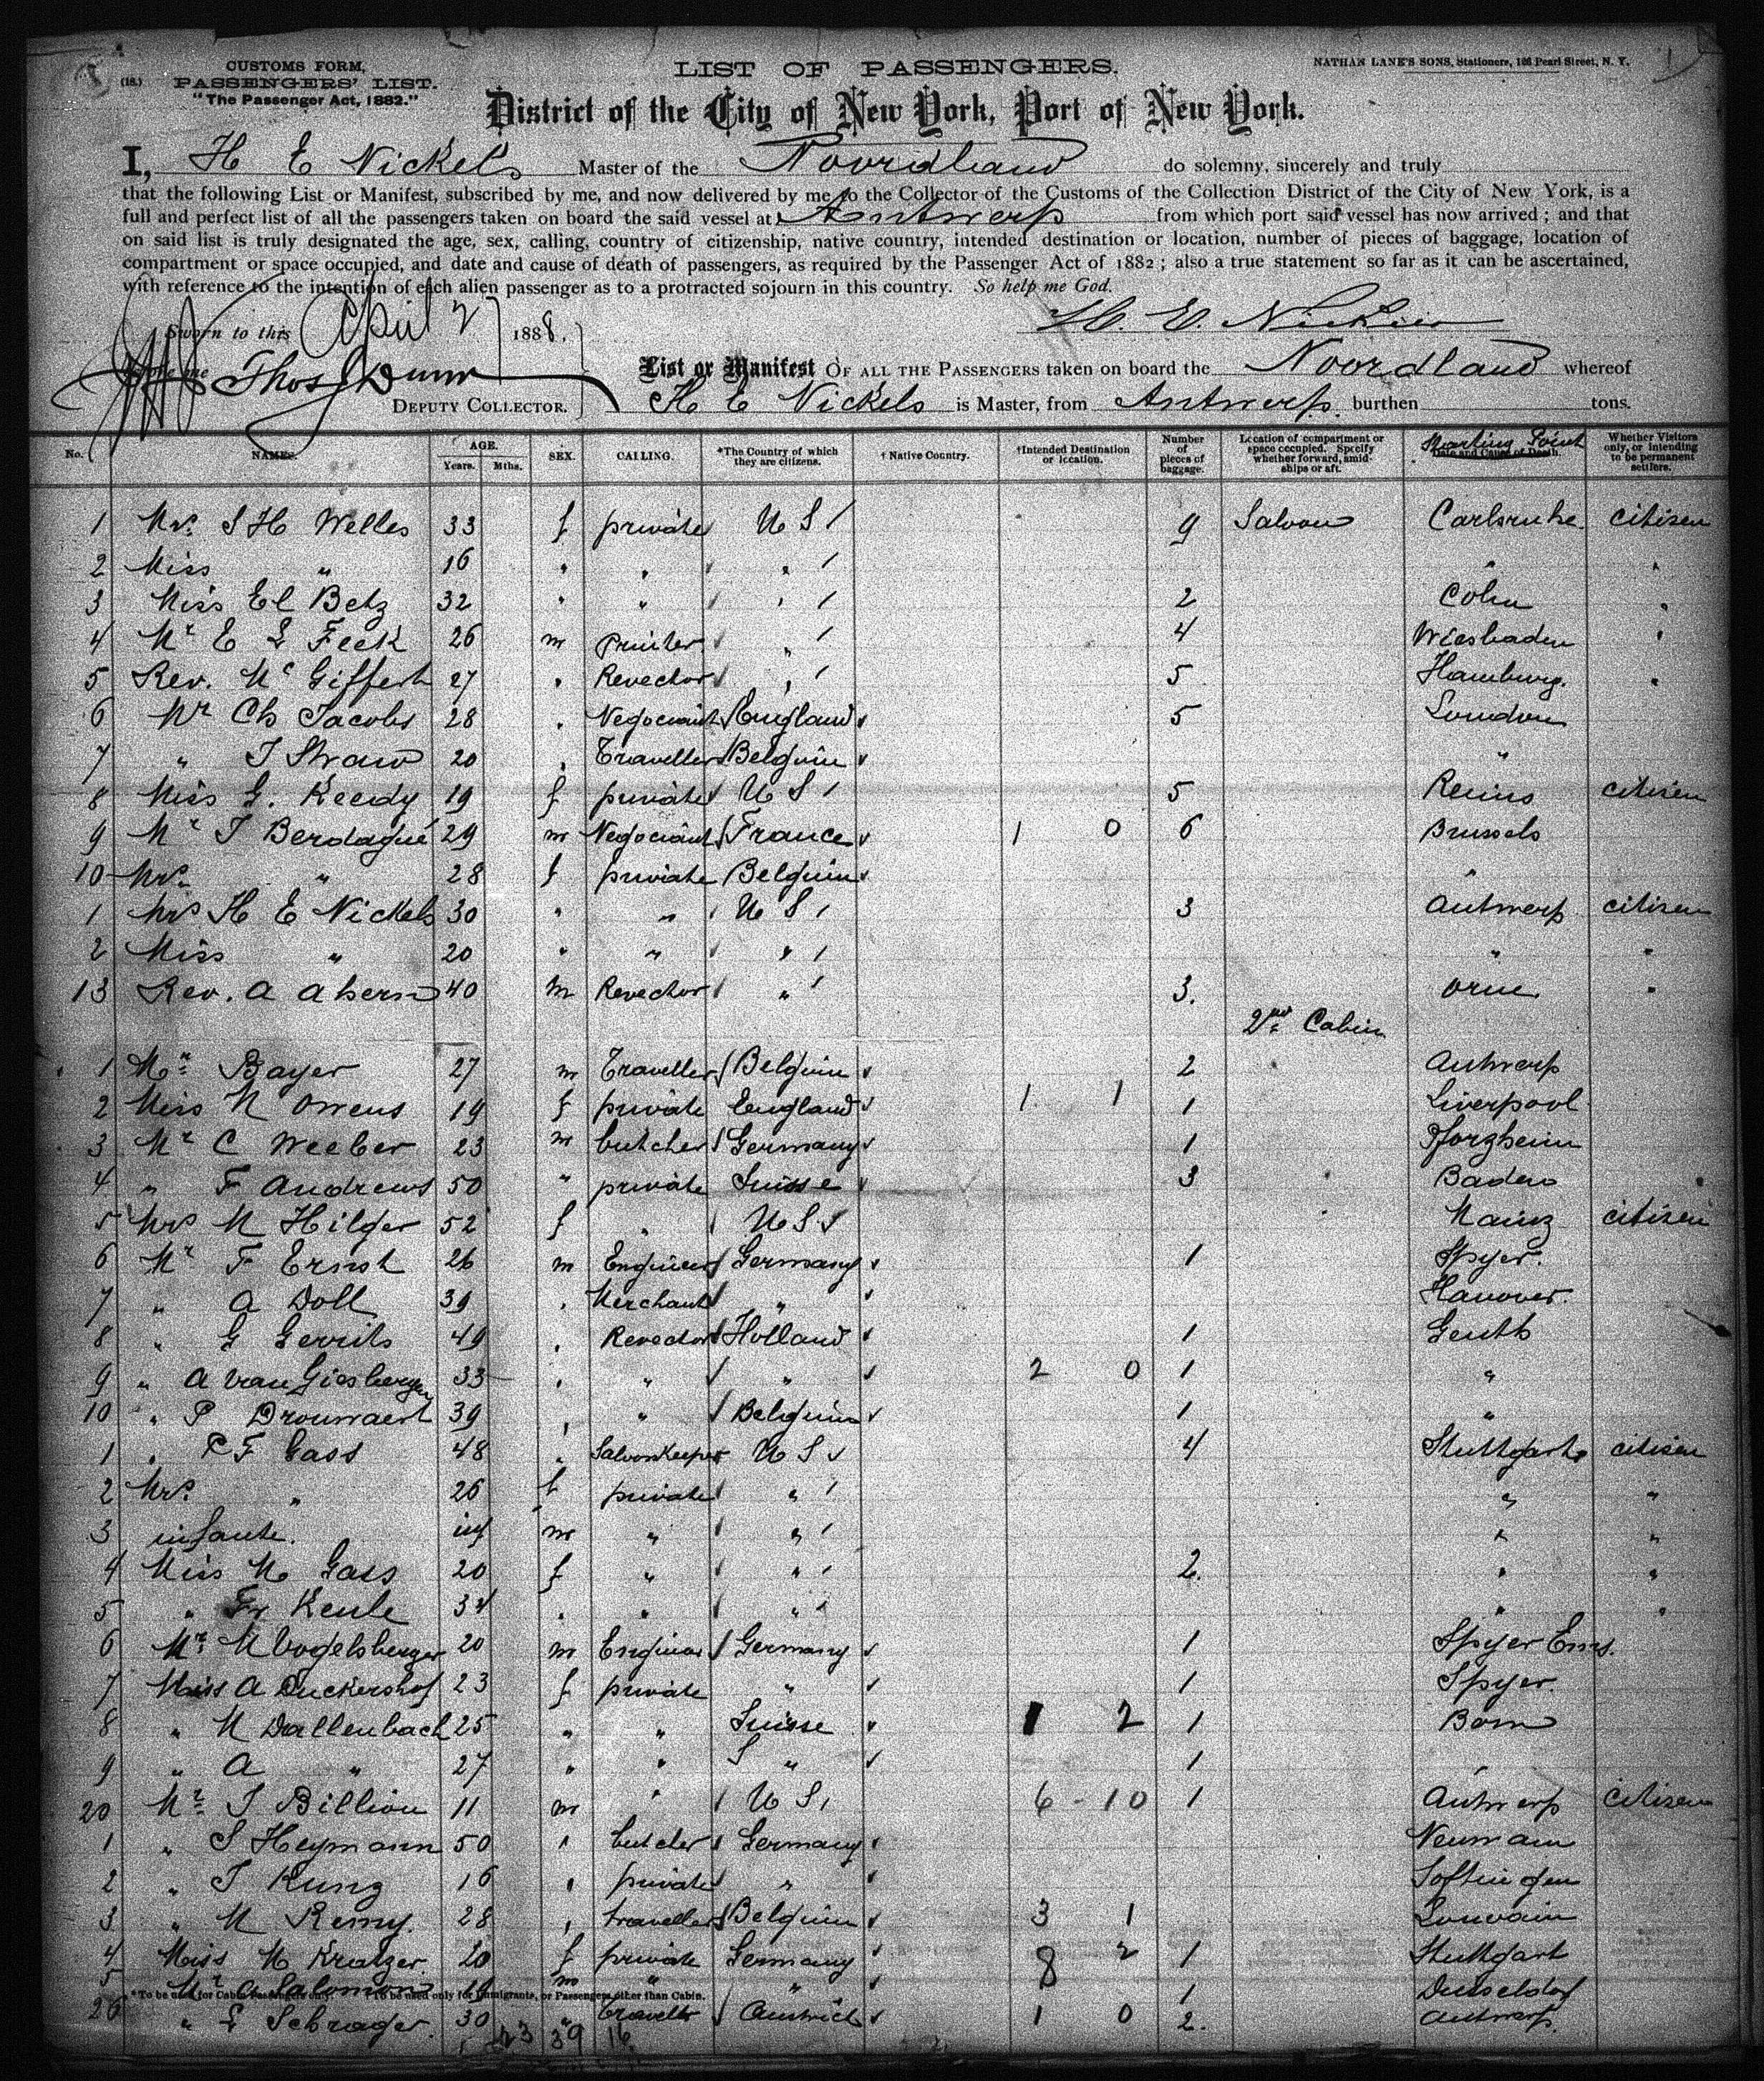 CUSTOMS FORM,
(18.) PASSENGERS' LIST.
"The Passenger Act, 1882."
LIST OF PASSENGERS.
NATHAN LANE'S SONS, Stationers, 166 Pearl Street, N. Y.
District of the City of New York, Port of New York.
I, H E Nickels Master of the Noordland do solemny, sincerely and truly
that the following List or Manifest, subscribed by me, and now delivered by me to the Collector of the Customs of the Collection District of the City of New York, is a
full and perfect list of all the passengers taken on board the said vessel at Antwerp from which port said vessel has now arrived; and that
on said list is truly designated the age, sex, calling, country of citizenship, native country, intended destination or location, number of pieces of baggage, location of
compartment or space occupied, and date and cause of death of passengers, as required by the Passenger Act of 1882; also a true statement so far as it can be ascertained,
with reference to the intention of each alien passenger as to a protracted sojourn in this country. So help me God.
Sworn to this April 2 1888.
H. E. Nickels
Before me Thos J Dunn
DEPUTY COLLECTOR.
List or Manifest OF ALL THE PASSENGERS taken on board the Noordland whereof
H E Nickels is Master, from Antwerp. burthen tons.
No. NAMES. AGE. Years. Mths. SEX. CALLING. *The Country of which they are citizens. † Native Country. †Intended Destination or location. Number of pieces of baggage. Location of compartment or space occupied. Specify whether forward, amidships or aft. Starting Point Date and Cause of Death. Whether Visitors only, or intending to be permanent settlers.
1 Mrs. S H Welles 33 f private U S 9 Saloon Carlsruhe. citizen
2 Miss " 16 " " " " "
3 Miss El Betz 32 " " " 2 Coln "
4 Mr E L Feek 26 m Printer " 4 Wiesbaden "
5 Rev. Mc Giffert 27 " Revector " 5 Hamburg. "
6 Mr Ch Jacobs 28 " Negociant England 5 London
7 " J Straw 20 " Traveller Belguin "
8 Miss G. Keedy 19 f private U S 5 Reims citizen
9 Mr J Berdagué 29 m Negociant France 1 0 6 Brussels
10 Mrs. " 28 f private Belguin "
1 Mrs H E Nickels 30 " " U S 3 Antwerp citizen
2 Miss " 20 " " " " "
13 Rev. A Ahern 40 m Revector " 3. "
2nd Cabin
1 Mr Bayer 27 m Traveller Belguin 2 Antwerp
2 Miss M Owens 19 f private England 1 1 1 Liverpool
3 Mr C Weeber 23 m butcher Germany 1 Pforzheim
4 " F Andrews 50 " private Suisse 3 Baden
5 Mrs M Hilger 52 f " U S Mainz citizen
6 Mr F Ernst 26 m Engineer Germany 1 Spyer.
7 " A Doll 39 " Merchant " Hanover.
8 " G Gerrits 49 " Revector Holland 1 Genth
9 " A van Giesbergen 33 " " " 2 0 1 "
10 " P Drouwaert 39 " " Belguin 1 "
1 " C F Gass 48 " Saloonkeeper U S 4 Stuttgart citizen
2 Mrs. " 26 f private " " "
3 infante. inf m " " " "
4 Miss M Gass 20 f " " 2. " "
5 " Fr Keule 34 " " " " "
6 Mr M Vogelsberger 20 m Engineer Germany 1 Spyer Ems.
7 Miss A Duckershof 23 f private " 1 Spyer.
8 " M Dallenbach 25 " " Suisse 1 2 1 Born
9 " A " 27 " " " 1 "
20 Mr J Billion 11 m " U S 6 - 10 1 Antwerp citizen
1 " S Heymann 50 " butcher Germany Neumann
2 " J Kunz 16 " private "
3 " M Remy. 28 " traveller Belguin 3 1 Louvain
4 Miss M Kratzer 20 f private Germany 8 2 1 Stuttgart
5 Mr A Salomon 19 m " " 1 Dusseldof
*To be used for Cabin Passengers only. †To be used only for Immigrants, or Passengers other than Cabin.
26 " L Schrager. 30 " Traveller Austrich 1 0 2. Antwerp.
43 39 16